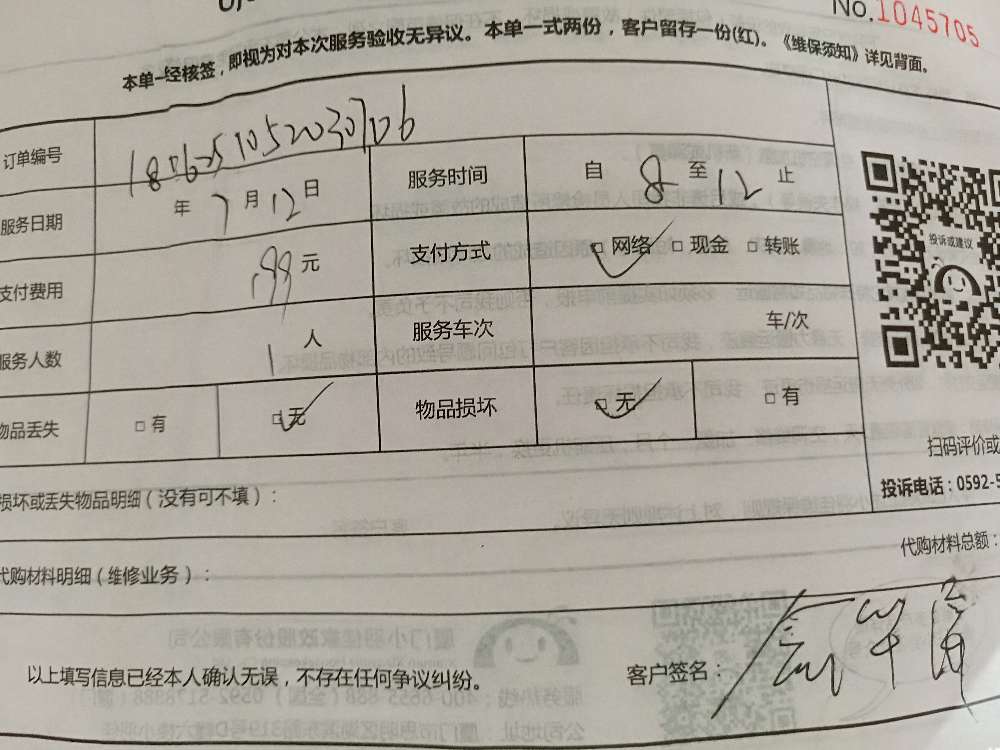 No.1045705
本单一经核签，即视为对本次服务验收无异议。本单一式两份，客户留存一份(红)。《维保须知》详见背面。
订单编号 1806251052030706
服务日期 年 7 月 12 日 服务时间 自 8 至 12 止
支付费用 199 元 支付方式 □ 网络 □ 现金 □ 转账
投诉或建议
服务人数 1 人 服务车次 车/次
物品丢失 □ 有 □ 无 物品损坏 □ 无 □ 有
扫码评价或
损坏或丢失物品明细（没有可不填）：
投诉电话：0592-5
代购材料明细（维修业务）： 代购材料总额：
以上填写信息已经本人确认无误，不存在任何争议纠纷。 客户签名：